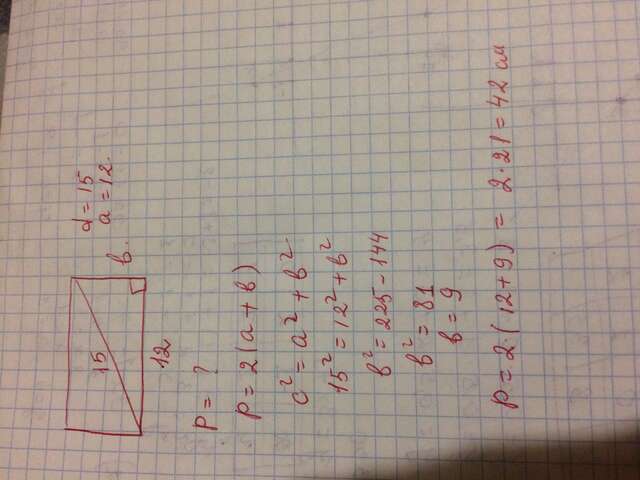 15
d = 15
a = 12.
в.
12
P = ?
P = 2(a + в)
c² = a² + в²
15² = 12² + в²
в² = 225 - 144
в² = 81
в = 9
P = 2·(12 + 9) = 2·21 = 42 см